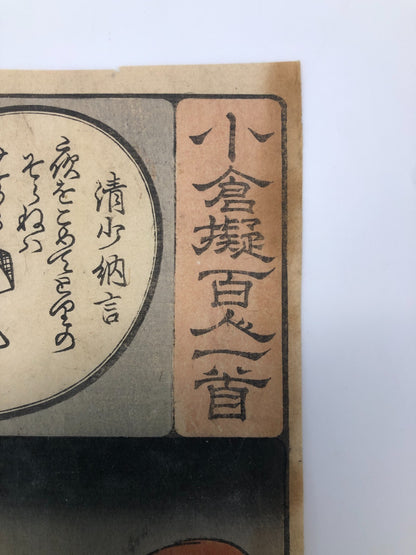 小倉擬百人一首
清少納言
夜をこめて鳥の
そらねハ